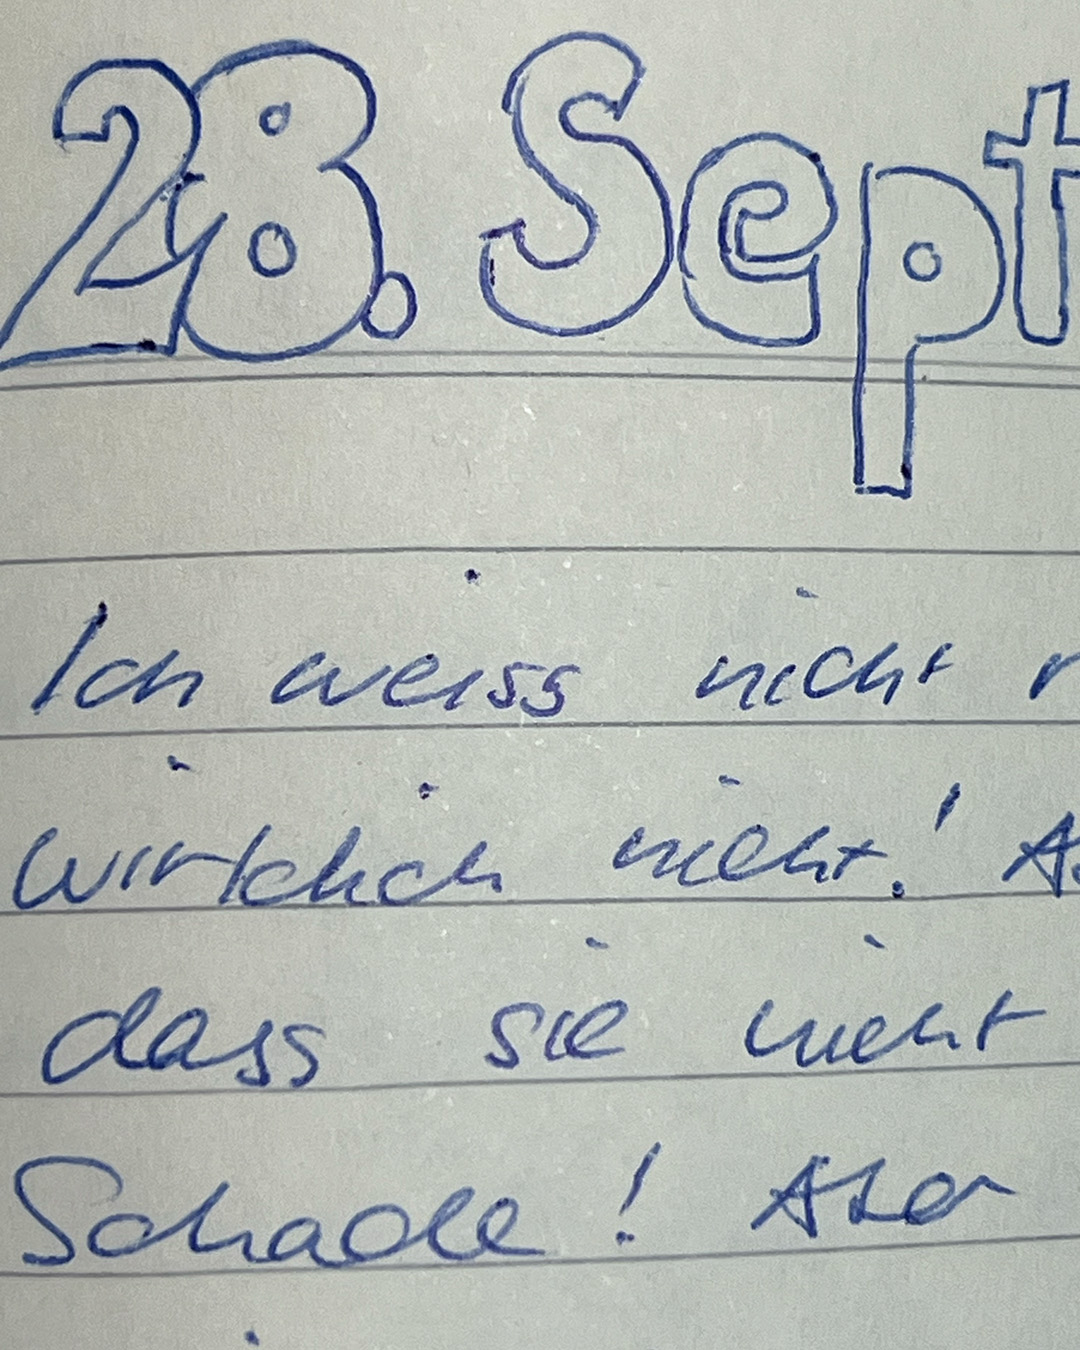 28. Sept
Ich weiss nicht
wirklich nicht!
dass sie nicht
Schade! Aber